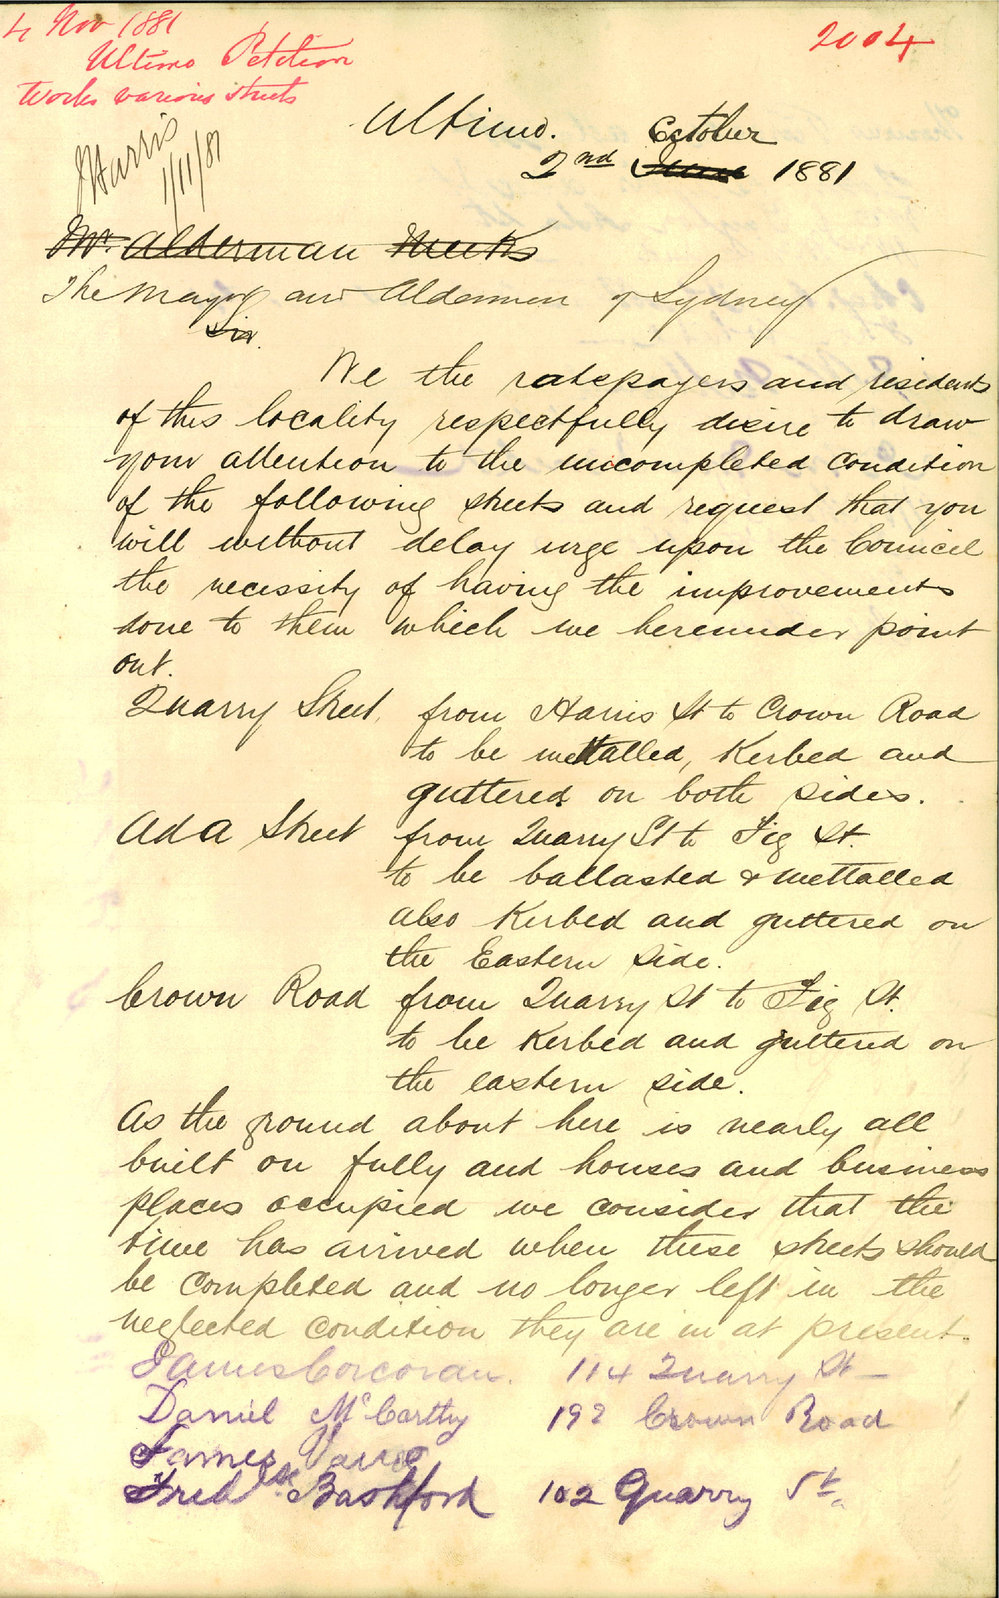 4 Nov 1881
Ultimo Petition
Works various streets
2004
JHarris
1/11/81
Ultimo.
October
2nd June 1881
Mr. Alderman Meeks
The Mayor and Aldermen of Sydney
Sir.
We the ratepayers and residents
of this locality respectfully desire to draw
your attention to the uncompleted condition
of the following streets and request that you
will without delay urge upon the Council
the necessity of having the improvements
done to them which we hereunder point
out.
Quarry Street, from Harris St to Crown Road
to be mettalled, Kerbed and
guttered on both sides.
Ada Street from Quarry St to Fig St.
to be ballasted & mettalled
also Kerbed and guttered on
the Eastern side.
Crown Road from Quarry St to Fig St.
to be Kerbed and guttered on
the eastern side.
As the ground about here is nearly all
built on fully and houses and business
places occupied we consider that the
time has arrived when these streets should
be completed and no longer left in the
neglected condition they are in at present.
James Corcoran. 114 Quarry St
Daniel McCarthy 192 Crown Road
James
Fredk Bashford 102 Quarry St.